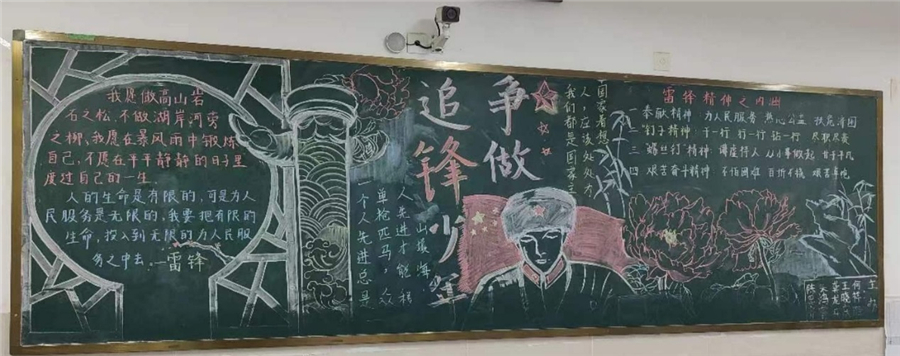 我愿做高山岩
石之松，不做湖岸河旁
之柳，我愿在暴风雨中锻炼
自己，不愿在平平静静的日子里
度过自己的一生
人的生命是有限的，可是为人
民服务是无限的，我要把有限的
生命，投入到无限的为人民服
务之中去。—雷锋
一个人先进总是
单枪匹马，众
人先进才能移
山填海
争做
追锋少年
我们都是国家主
人，应该处处为
国家着想
雷锋精神之内
一 奉献精神 为人民服务 热心公益 扶危济困
二 "钉子"精神: 干一行 钻一行 尽职尽责
三 "螺丝钉"精神: 谦虚待人 从小事做起 甘于平凡
四 艰苦奋斗精神 不怕困难 百折不挠 艰苦